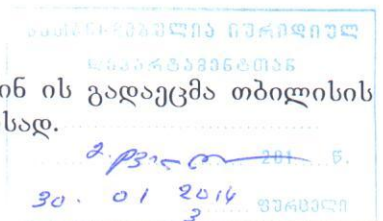 შეთანხმებულია იურიდიულ
დეპარტამენტთან
ინ ის გადაეცმა თბილისის
სად.
201 წ.
30. 01 2014 ფურცელი
3